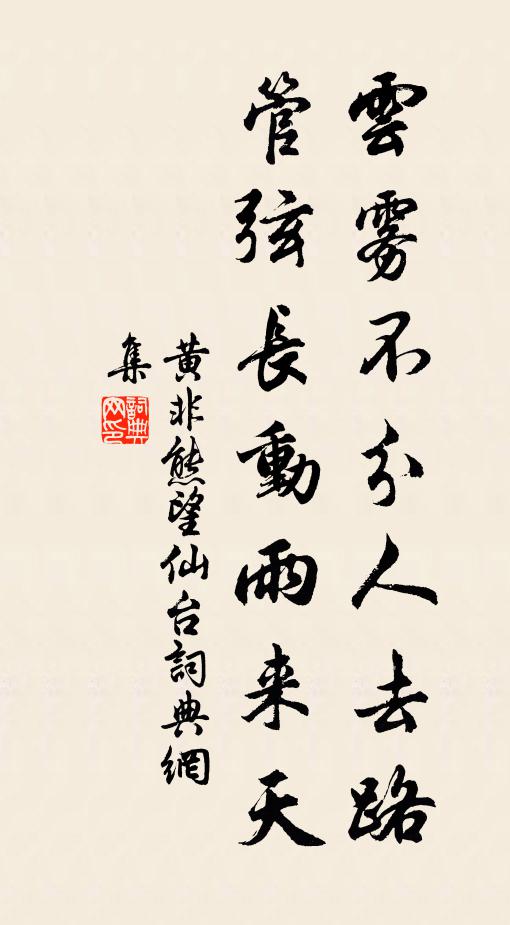 雲雾不分人去路
管弦長動雨来天
黄非熊望仙台詞典網
集
詞典网印